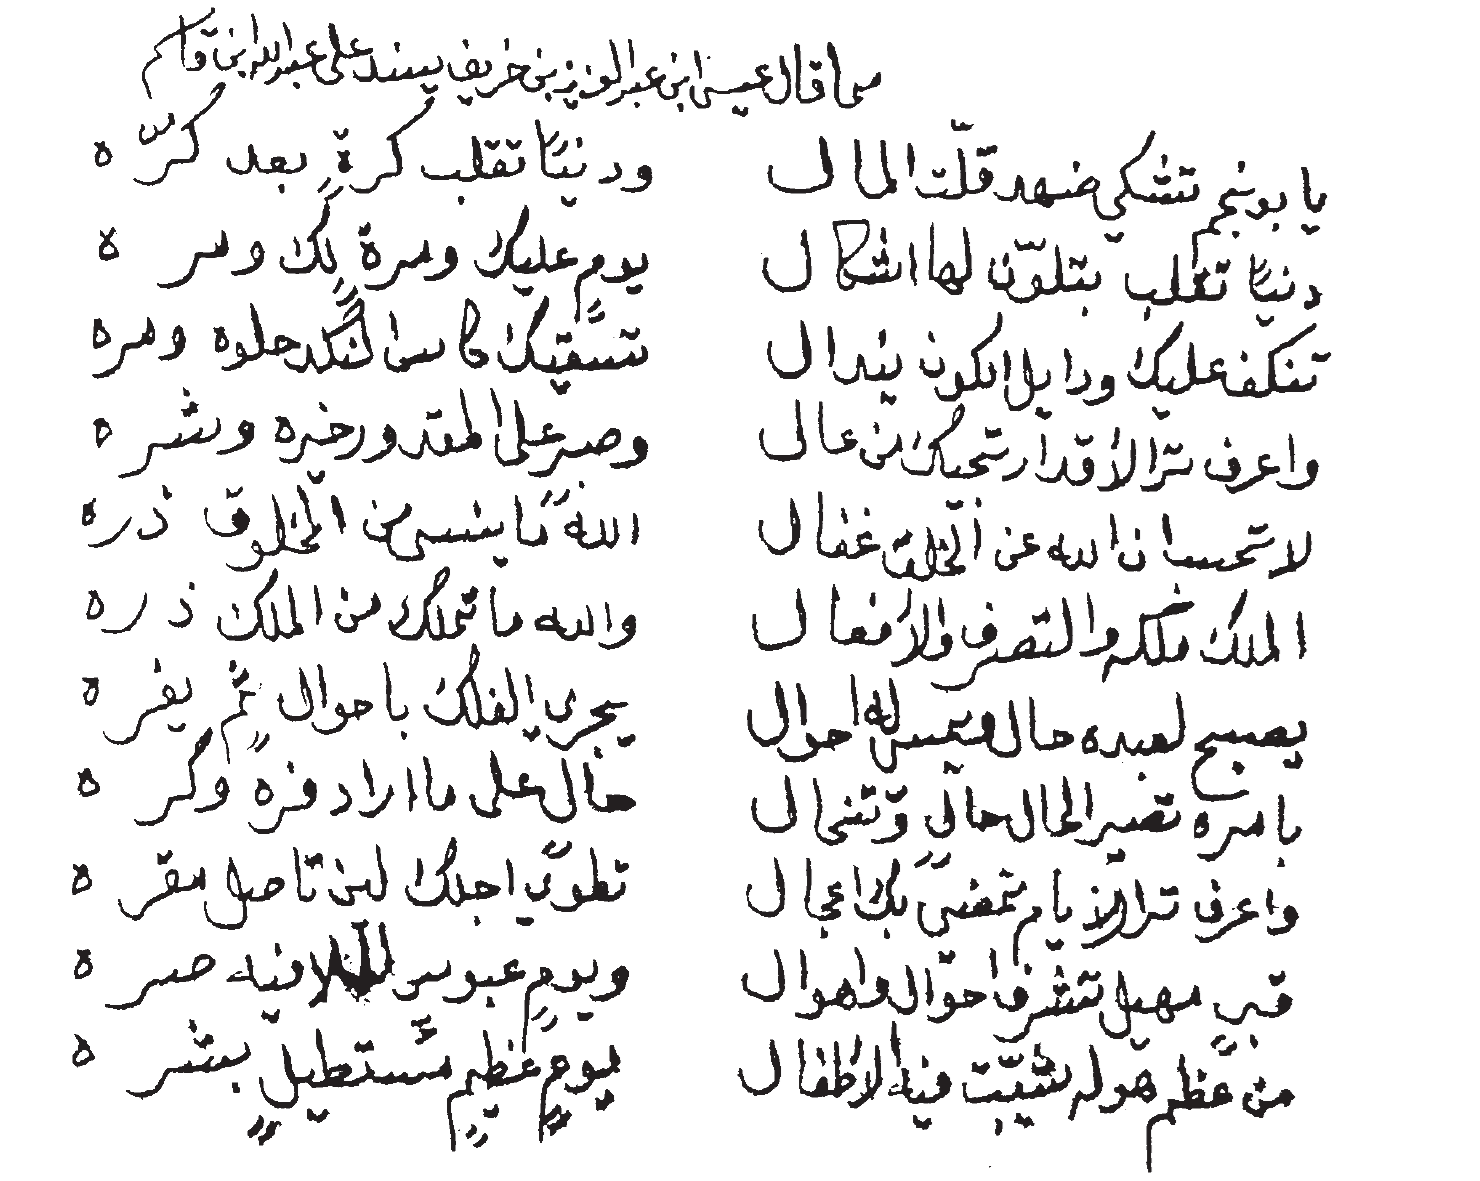 مما قال عيسى ابن عبد العزيز بن خريف يسند على عبد الله ابن قاسم
يا بو نجم تشكي ضهد قلّت المال ودنيًا تقلب كرةٍ بعد كرّه
دنيًا تقلب بتلوّن لها اشكال يومٍ عليك ومرةٍ لك ومره
تنكف عليك ودابل الكون ينдال تسقيك كاس النكد حلوه ومره
واعرف ترا الأقدار تجيك من عال وصبر على المقدور خيره وشره
لا تحسب ان الله عن الخلق غفال الله ما ينسى من المخلوق ذره
الملك ملكه والتصرف والأفعال والله ما تملك من الملك ذره
يصبح لعبده حال ويمسي له احوال يجري الفلك باحوال ثم يفره
بامره تصير الحال حال وتنحال حال على ما اراد فره وكره
واعرف ترا الأيام تمضي بك اعجال تطوي اجلك لين تاصل مقره
قبر مهيل تشرف احوال واهوال ويوم عبوس فيه صره
من عظم هوله شيّبت فيه الأطفال يومٍ عظيمٍ مستطيلٍ بشره